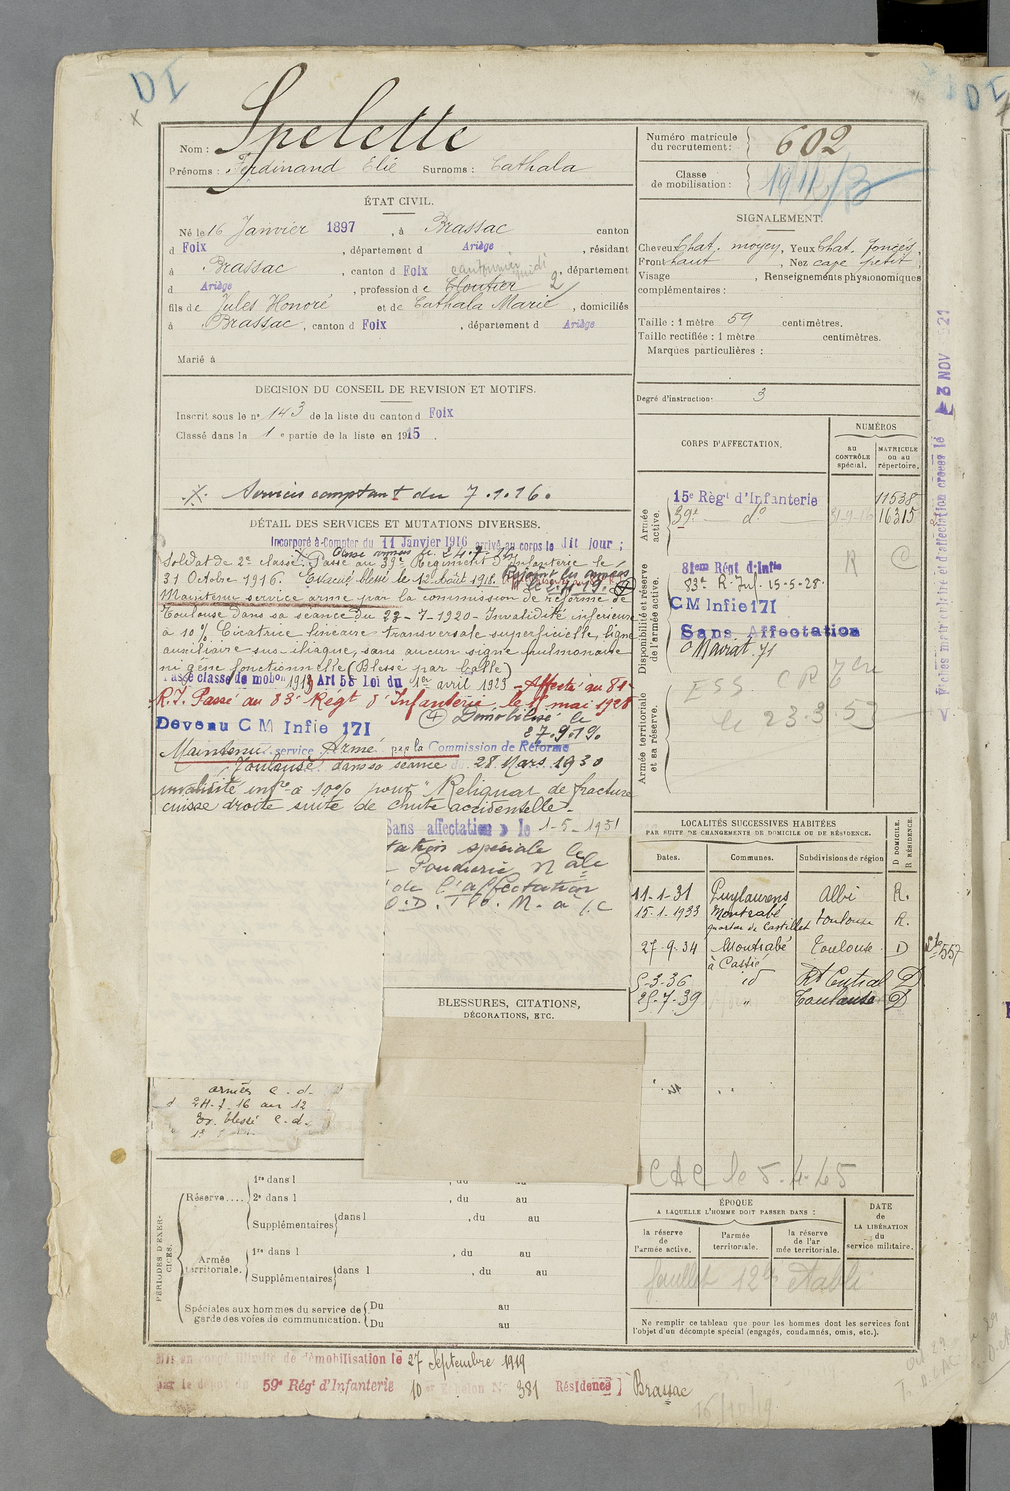 DI
Nom : Spelette
Prénoms : Ferdinand Elie Surnoms : Cathala
Numéro matricule du recrutement : 602
Classe de mobilisation :
ÉTAT CIVIL.
Né le 16 Janvier 1897, à Brassac canton
d Foix, département d Ariège, résidant
à Brassac, canton d Foix, département
d Ariège, profession de Cloutier 2
fils de Jules Honoré et de Cathala Marie, domiciliés
à Brassac, canton d Foix, département d Ariège
Marié à
SIGNALEMENT.
Cheveux Chat. moyen, Yeux Chat. foncés
Front haut, Nez cave petit
Visage, Renseignements physionomiques
complémentaires :
Taille : 1 mètre 59 centimètres.
Taille rectifiée : 1 mètre centimètres.
Marques particulières :
Degré d'instruction 3
DÉCISION DU CONSEIL DE REVISION ET MOTIFS.
Inscrit sous le n° 143 de la liste du canton d Foix
Classé dans la 1e partie de la liste en 1915.
X. Services comptant du 7.1.16.
DÉTAIL DES SERVICES ET MUTATIONS DIVERSES.
Incorporé à Compter du 11 Janvier 1916 arrivé au corps le dit jour ;
Soldat de 2e classe. Passé au 39e Régiment d'Infanterie le
31 Octobre 1916. Evacué blessé le 12 Août 1918. Rejoint les armées
Maintenu service armé par la commission de réforme de
Toulouse dans sa séance du 23-7-1920 - Invalidité inférieure
à 10 % Cicatrice linéaire transversale superficielle, ligne
auxiliaire sus-iliaque, sans aucun signe pulmonaire
ni gêne fonctionnelle (Blessé par balle)
Passé classe de mobon 1913 Art 58 Loi du 1er avril 1923 - Affecté au 81e
R.I. Passé au 83e Régt d'Infanterie, le 15 mai 1928
Devenu CM Infie 171 Démobilisé le
27.9.19
Maintenu service Armé par la Commission de Réforme
Toulouse dans sa séance du 28 Mars 1930
invalidité infre à 10% pour "Reliquat de fracture
cuisse droite suite de chute accidentelle -
Sans affectation le 1-5-1951
tation spéciale le
Poudrerie Nale
de l'affectation
armées C. d.
24-7-16 au 12
Ev. blessé C. d.
BLESSURES, CITATIONS,
DÉCORATIONS, ETC.
CORPS D'AFFECTATION.
NUMÉROS
au CONTRÔLE spécial.
MATRICULE ou au répertoire.
Armée active.
15e Régt d'Infanterie 11538
39e do 16315
Disponibilité et réserve de l'armée active.
R C
81eme Régt d'Infie
83e R. Inf. 15-5-28
CM Infie 171
Sans Affectation
Armée territoriale et sa réserve.
le 23.3.53
Fiches matriculaire et d'affectation créées le 3 NOV 1921
LOCALITÉS SUCCESSIVES HABITÉES
PAR SUITE DE CHANGEMENTS DE DOMICILE OU DE RÉSIDENCE.
Dates. Communes. Subdivisions de région D DOMICILE. R RÉSIDENCE.
11-1-31 Puylaurens Albi R.
15.1.1933 Montrabé quartier de Castillet Toulouse R.
27-9-34 Montrabé à Castié Toulouse D
5-3-36 id Rt Central D
25-7-39 " Toulouse D
CAC le 5.4.45
ÉPOQUE
A LAQUELLE L'HOMME DOIT PASSER DANS :
la réserve de l'armée active.
l'armée territoriale.
la réserve de l'armée territoriale.
DATE de LA LIBÉRATION du service militaire.
feuillet 12 établi
Ne remplir ce tableau que pour les hommes dont les services font
l'objet d'un décompte spécial (engagés, condamnés, omis, etc.).
PÉRIODES D'EXERCICES.
Réserve....
1re dans l , du au
2e dans l , du au
Supplémentaires dans l , du au
Armée territoriale.
1re dans l , du au
Supplémentaires dans l , du au
Spéciales aux hommes du service de garde des voies de communication.
Du au
Du au
Mis en congé illimité de démobilisation le 27 Septembre 1919
par le dépôt du 59e Régt d'Infanterie 10e Echelon N° 381 Résidence Brassac
16/10/19